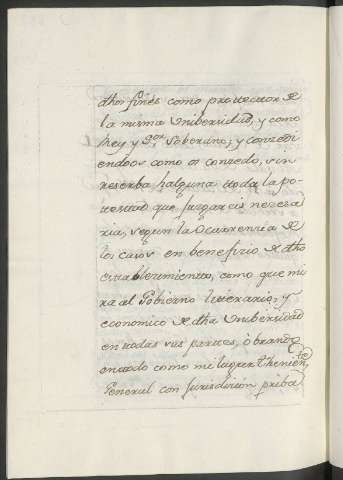 dhos fines como protector de
la misma Unibersidad, y como
Rey y S.or Soberano; y conzedi
endoos como os conzedo, sin
reserba halguna toda la po-
testad que juzgareis nezesa
ria, segun la Ocurrenzia de
los casos en benefizio de dho
establezimiento, como que mi
ra al Gobierno literario, y
economico de dha Unibersidad
en todas sus partes, obrando
en todo como mi lugar theniente
General con Jurisdizion priba